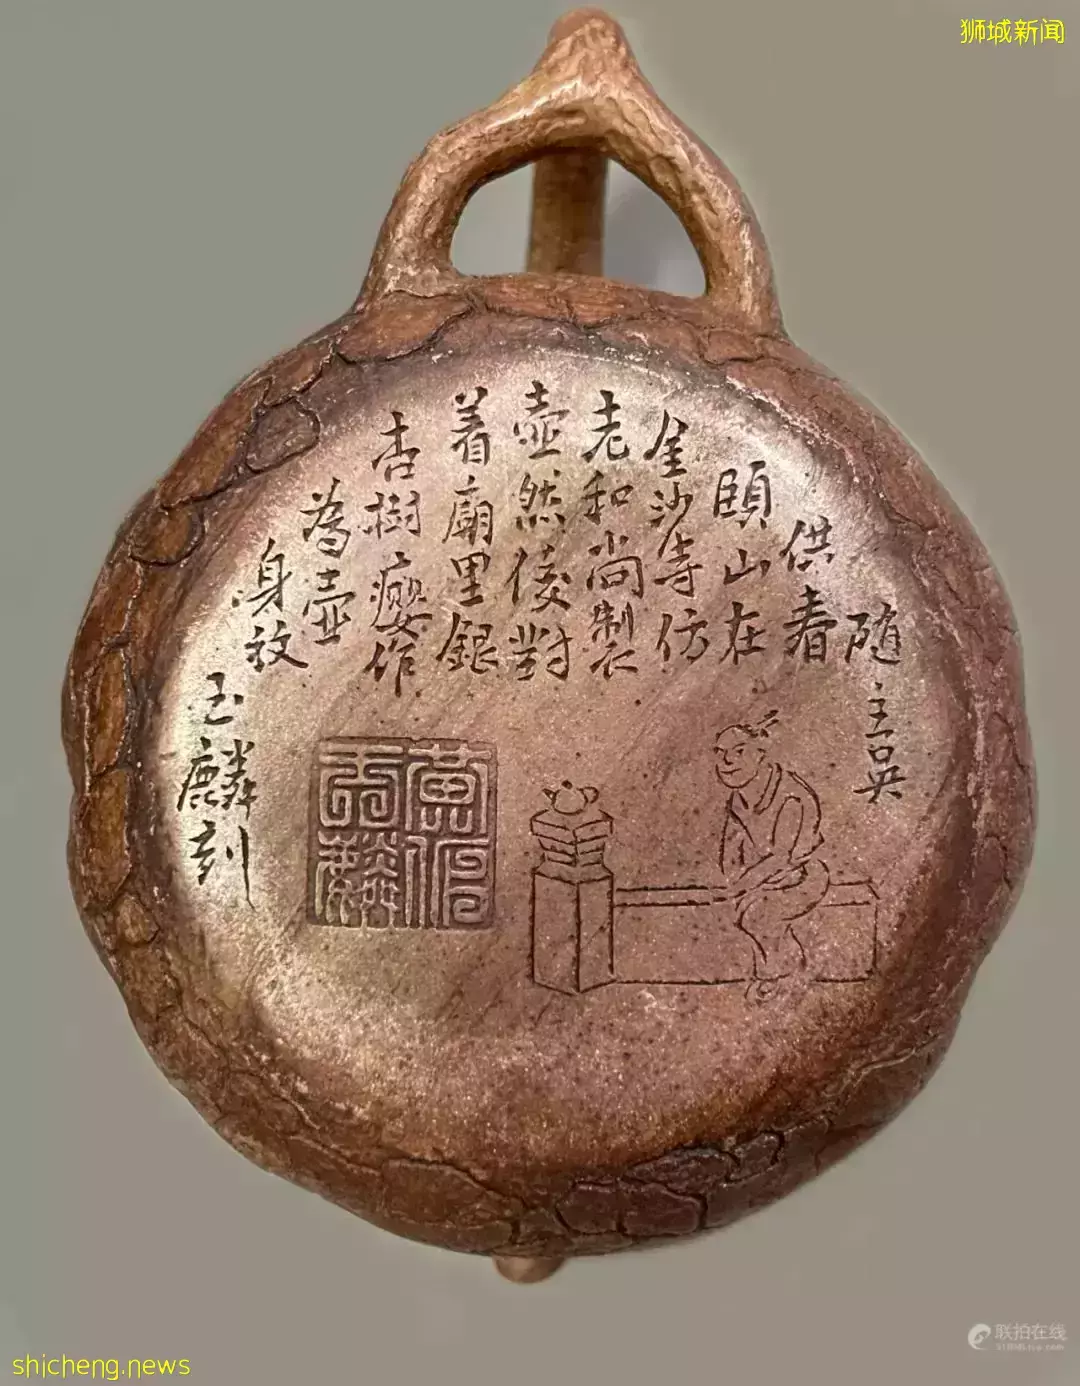 狮城新闻
供春
随主吴
頤山在
金沙寺仿
老和尚製
壺然後對
着廟里銀
杏樹癭作
為壺
身紋
玉麟刻
黄
玉麟
shicheng.news
联拍在线